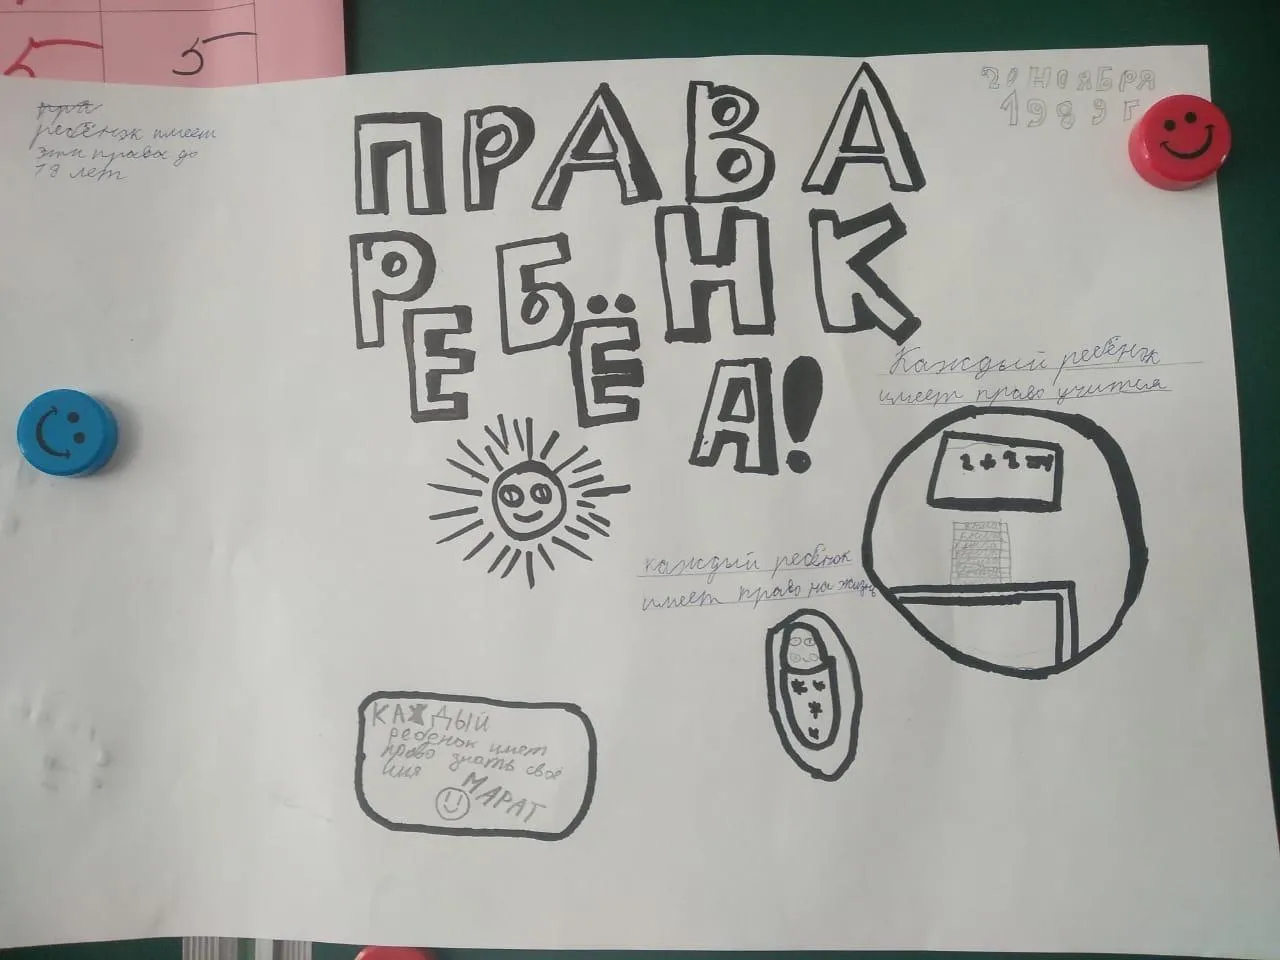 5 5
ребёнок имеет
эти права до
18 лет
20 НОЯБРЯ
1989 г
ПРАВА
РЕБЁНК
А!
Каждый ребёнок
имеет право учится
2+2=4
каждый ребёнок
имеет право на жизнь
КАЖДЫЙ
ребёнок имет
право знать своё
имя
МАРАТ